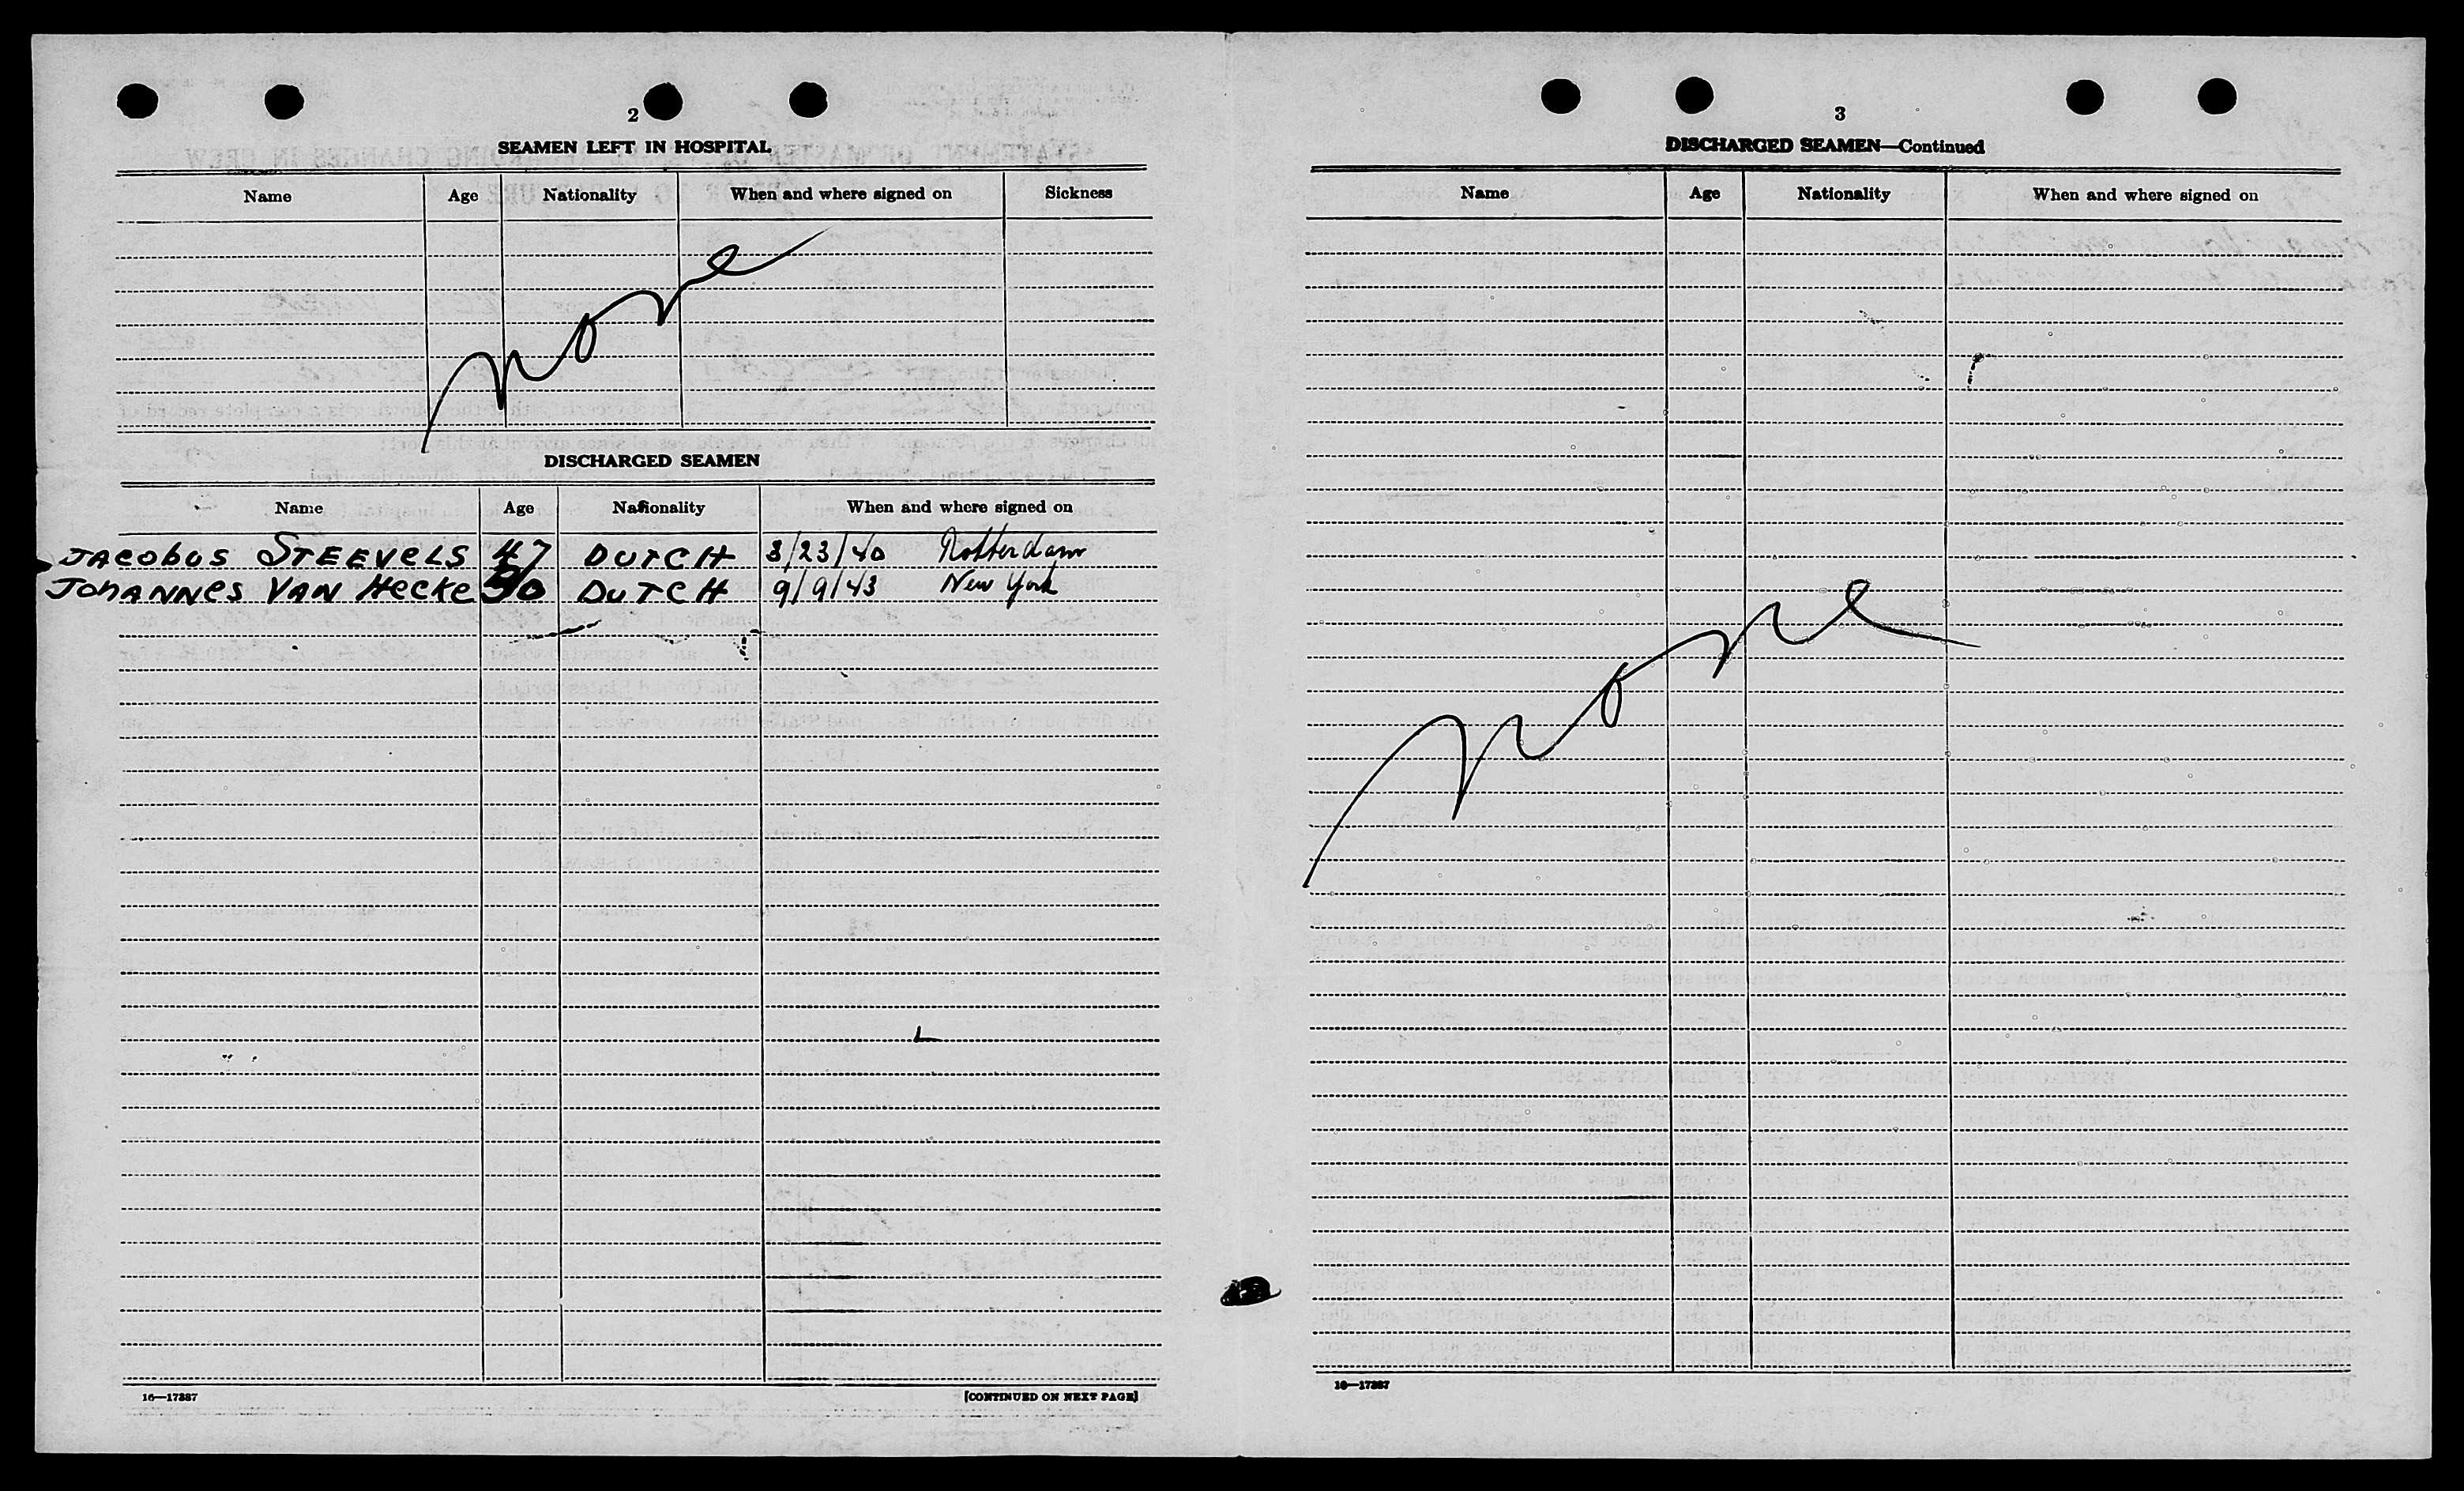 2
SEAMEN LEFT IN HOSPITAL
Name Age Nationality When and where signed on Sickness
None
DISCHARGED SEAMEN
Name Age Nationality When and where signed on
JACOBUS STEEVELS 47 DUTCH 3/23/40 Rotterdam
JOHANNES VAN HECKE 50 DUTCH 9/9/43 New York
16—17387
[CONTINUED ON NEXT PAGE]
3
DISCHARGED SEAMEN—Continued
Name Age Nationality When and where signed on
None
16—17387